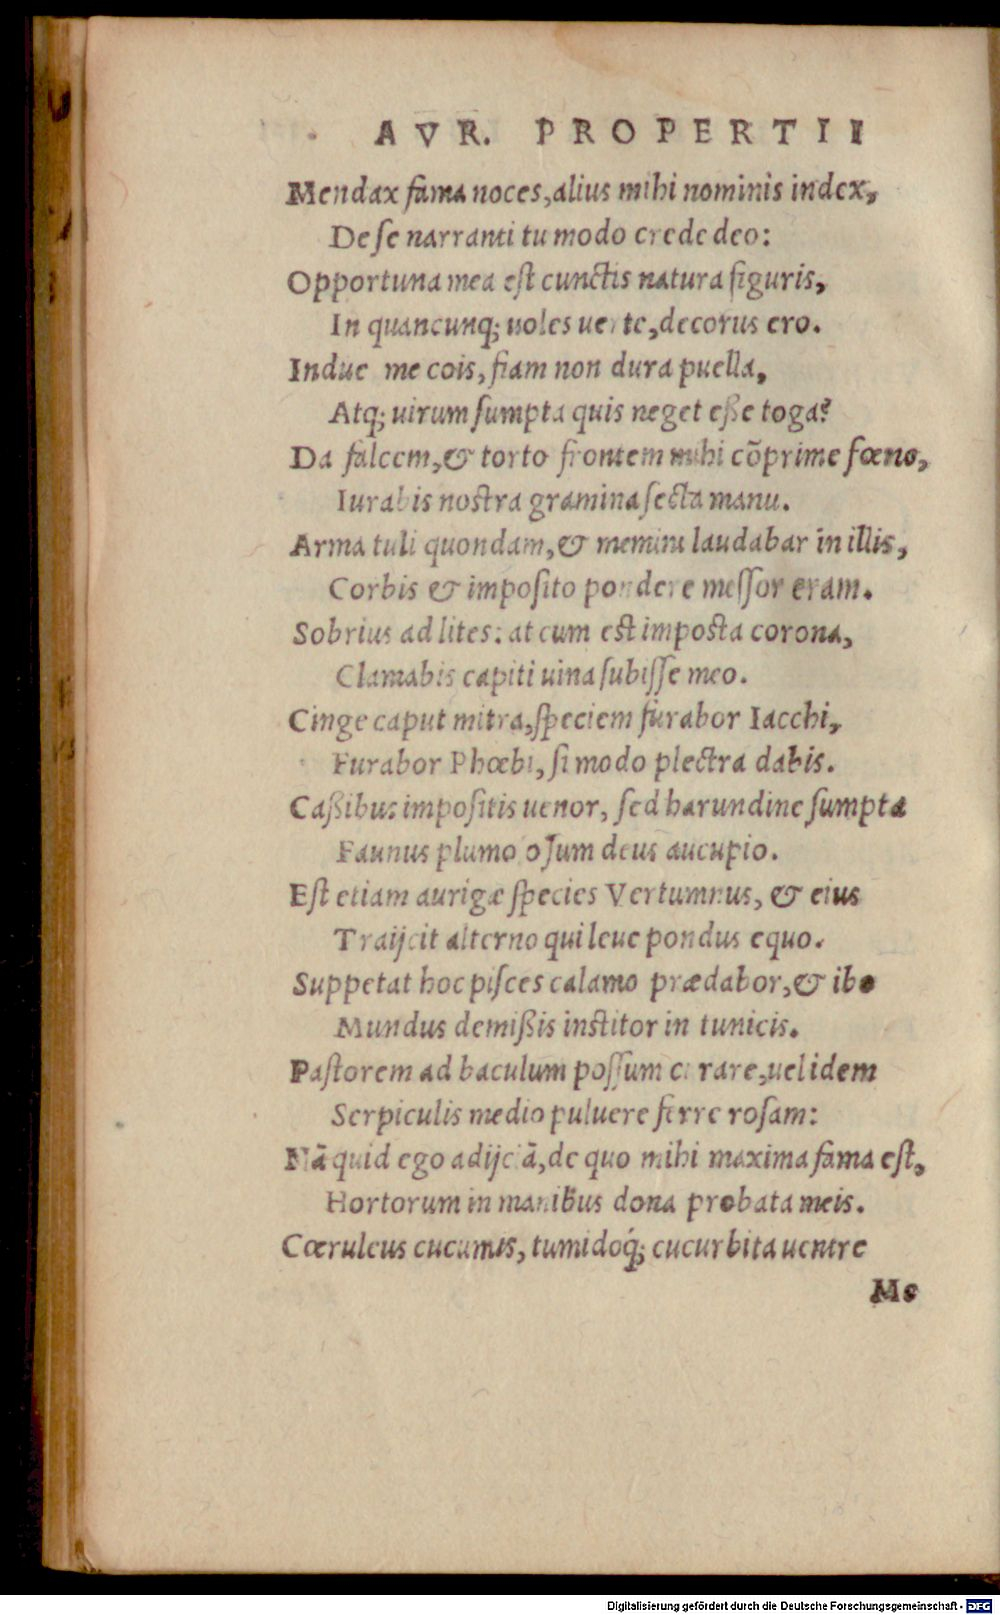 AVR. PROPERTII
Mendax fama noces, alius mihi nominis index,
De se narranti tu modo crede deo:
Opportuna mea est cunctis natura figuris,
In quancunq; uoles uerte, decorus ero.
Indue me cois, fiam non dura puella,
Atq; uirum sumpta quis neget eße toga?
Da falcem, & torto frontem mihi cõprime fœno,
Iurabis nostra gramina secta manu.
Arma tuli quondam, & memini laudabar in illis,
Corbis & imposito pondere messor eram.
Sobrius ad lites: at cum est imposta corona,
Clamabis capiti uina subisse meo.
Cinge caput mitra, speciem furabor Iacchi,
Furabor Phœbi, si modo plectra dabis.
Caßibus impositis uenor, sed harundine sumpta
Faunus plumoosum deus aucupio.
Est etiam aurigæ species Vertumnus, & eius
Traijcit alterno qui leue pondus equo.
Suppetat hoc pisces calamo prædabor, & ibo
Mundus demißis institor in tunicis.
Pastorem ad baculum possum curare, uel idem
Serpiculis medio puluere ferre rosam:
Nã quid ego adijciã, de quo mihi maxima fama est,
Hortorum in manibus dona probata meis.
Cœruleus cucumis, tumidoq́; cucurbita uentre
Me
Digitalisierung gefördert durch die Deutsche Forschungsgemeinschaft - DFG